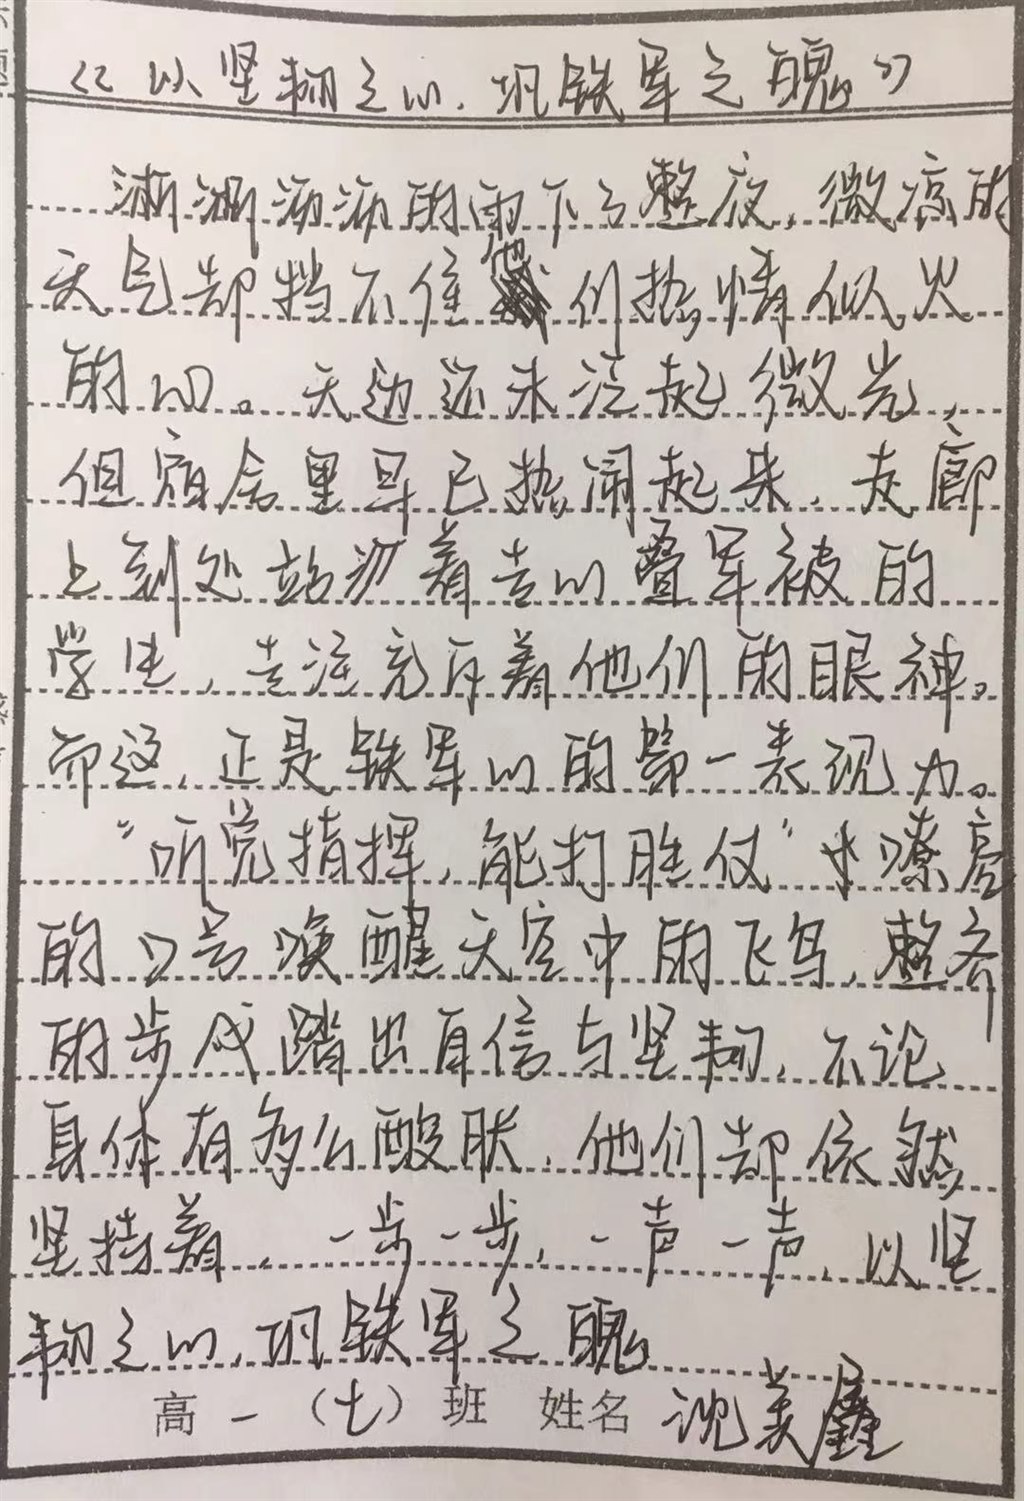 《以坚韧之心,巩铁军之魄》
淅淅沥沥的雨下了整夜,微凉的
天气却挡不住他们热情似火
的心。天边还未泛起微光,
但宿舍里早已热闹起来,走廊
上到处站满着专心叠军被的
学生,专注充斥着他们的眼神。
而这,正是铁军心的第一表现力。
“听党指挥,能打胜仗”嘹亮
的口号唤醒天空中的飞鸟,整齐
的步伐踏出自信与坚韧,不论
身体有多么酸胀,他们却依然
坚持着,一步一步,一声一声,以坚
韧之心,巩铁军之魄
高一(七)班 姓名 沈美鑫